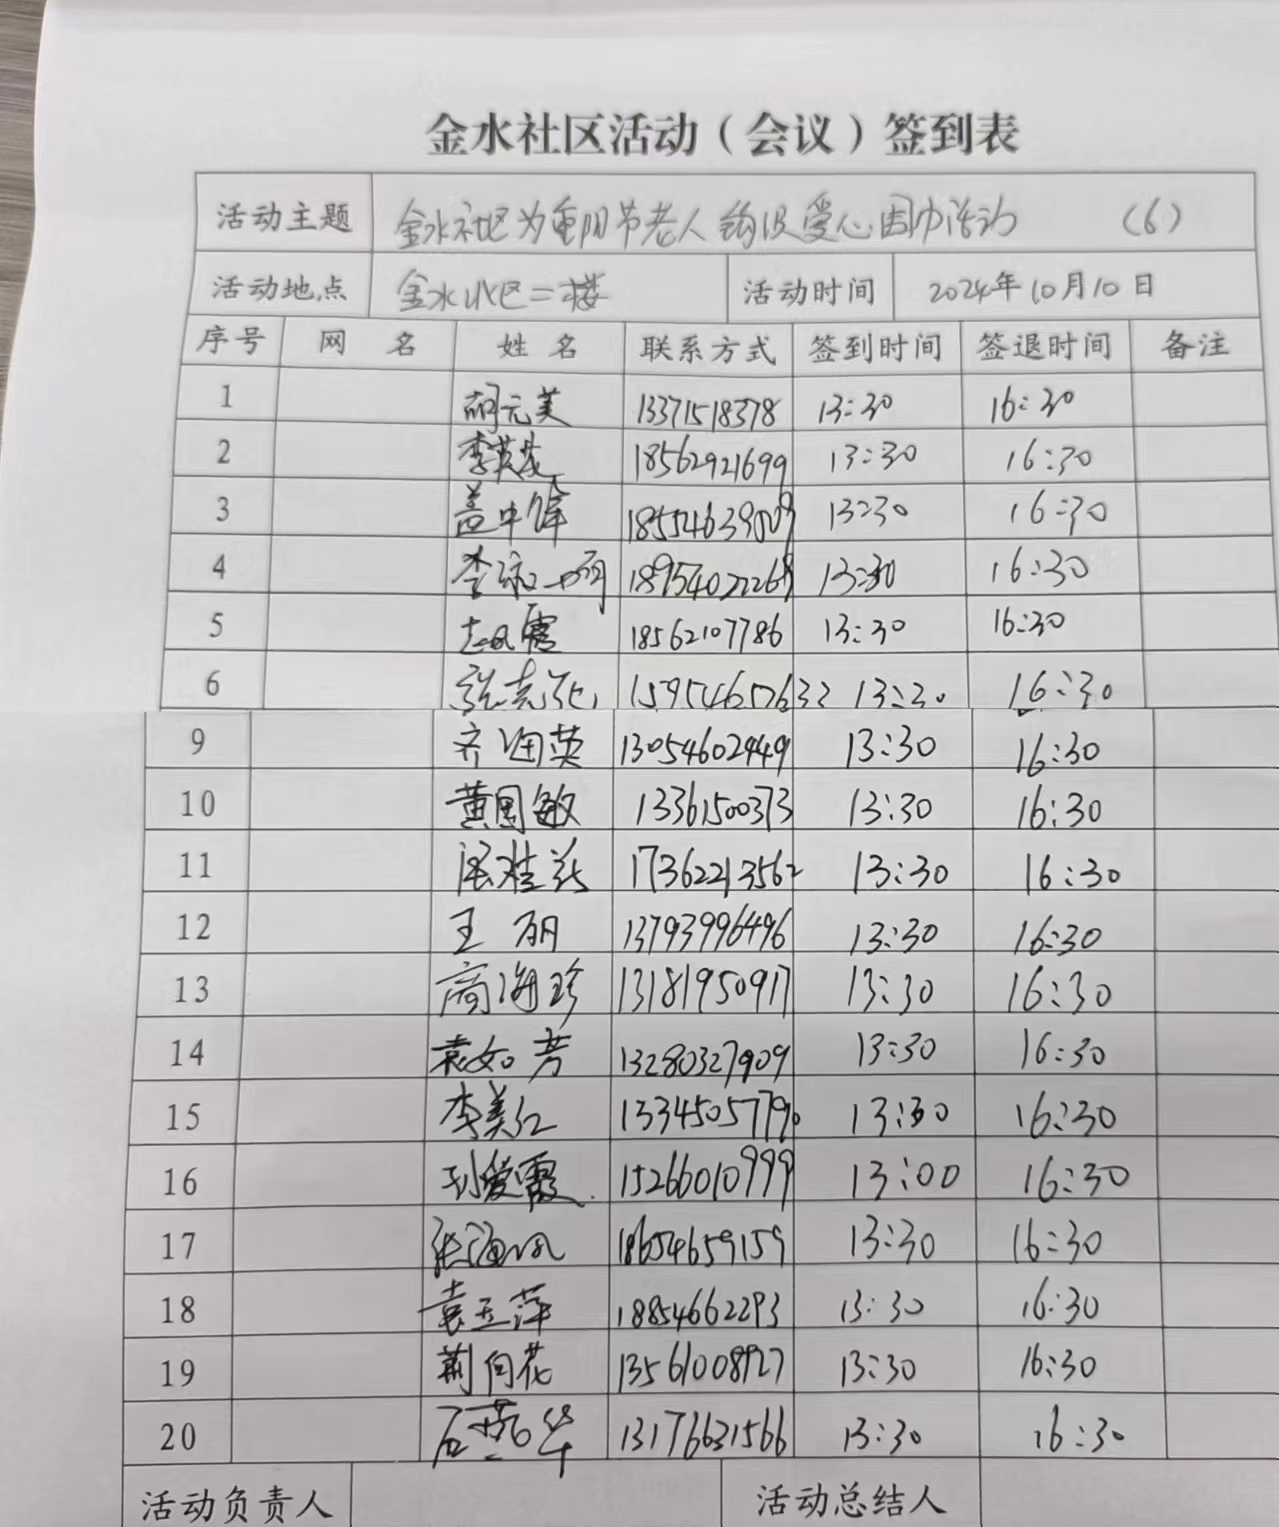 金水社区活动（会议）签到表
活动主题 金水社区为重阳节老人钩织爱心围巾活动 （6）
活动地点 金水小区二楼 活动时间 2024年10月10日
序号 网 名 姓 名 联系方式 签到时间 签退时间 备注
1 胡元美 13371518378 13:30 16:30
2 李英茂 18562921699 13:30 16:30
3 盖中锋 18554639009 13:30 16:30
4 李 18954022268 13:30 16:30
5 18562107786 13:30 16:30
6 13:30 16:30
9 齐国英 13054602449 13:30 16:30
10 黄国敏 13361500373 13:30 16:30
11 17362213562 13:30 16:30
12 王丽 13793996496 13:30 16:30
13 商海珍 13181950917 13:30 16:30
14 袁如芳 13280327909 13:30 16:30
15 李美红 13345057790 13:30 16:30
16 刘爱霞 15266010999 13:00 16:30
17 张海风 18654659159 13:30 16:30
18 袁玉萍 18854662293 13:30 16:30
19 荆向花 13561008927 13:30 16:30
20 石燕华 13176631566 13:30 16:30
活动负责人 活动总结人